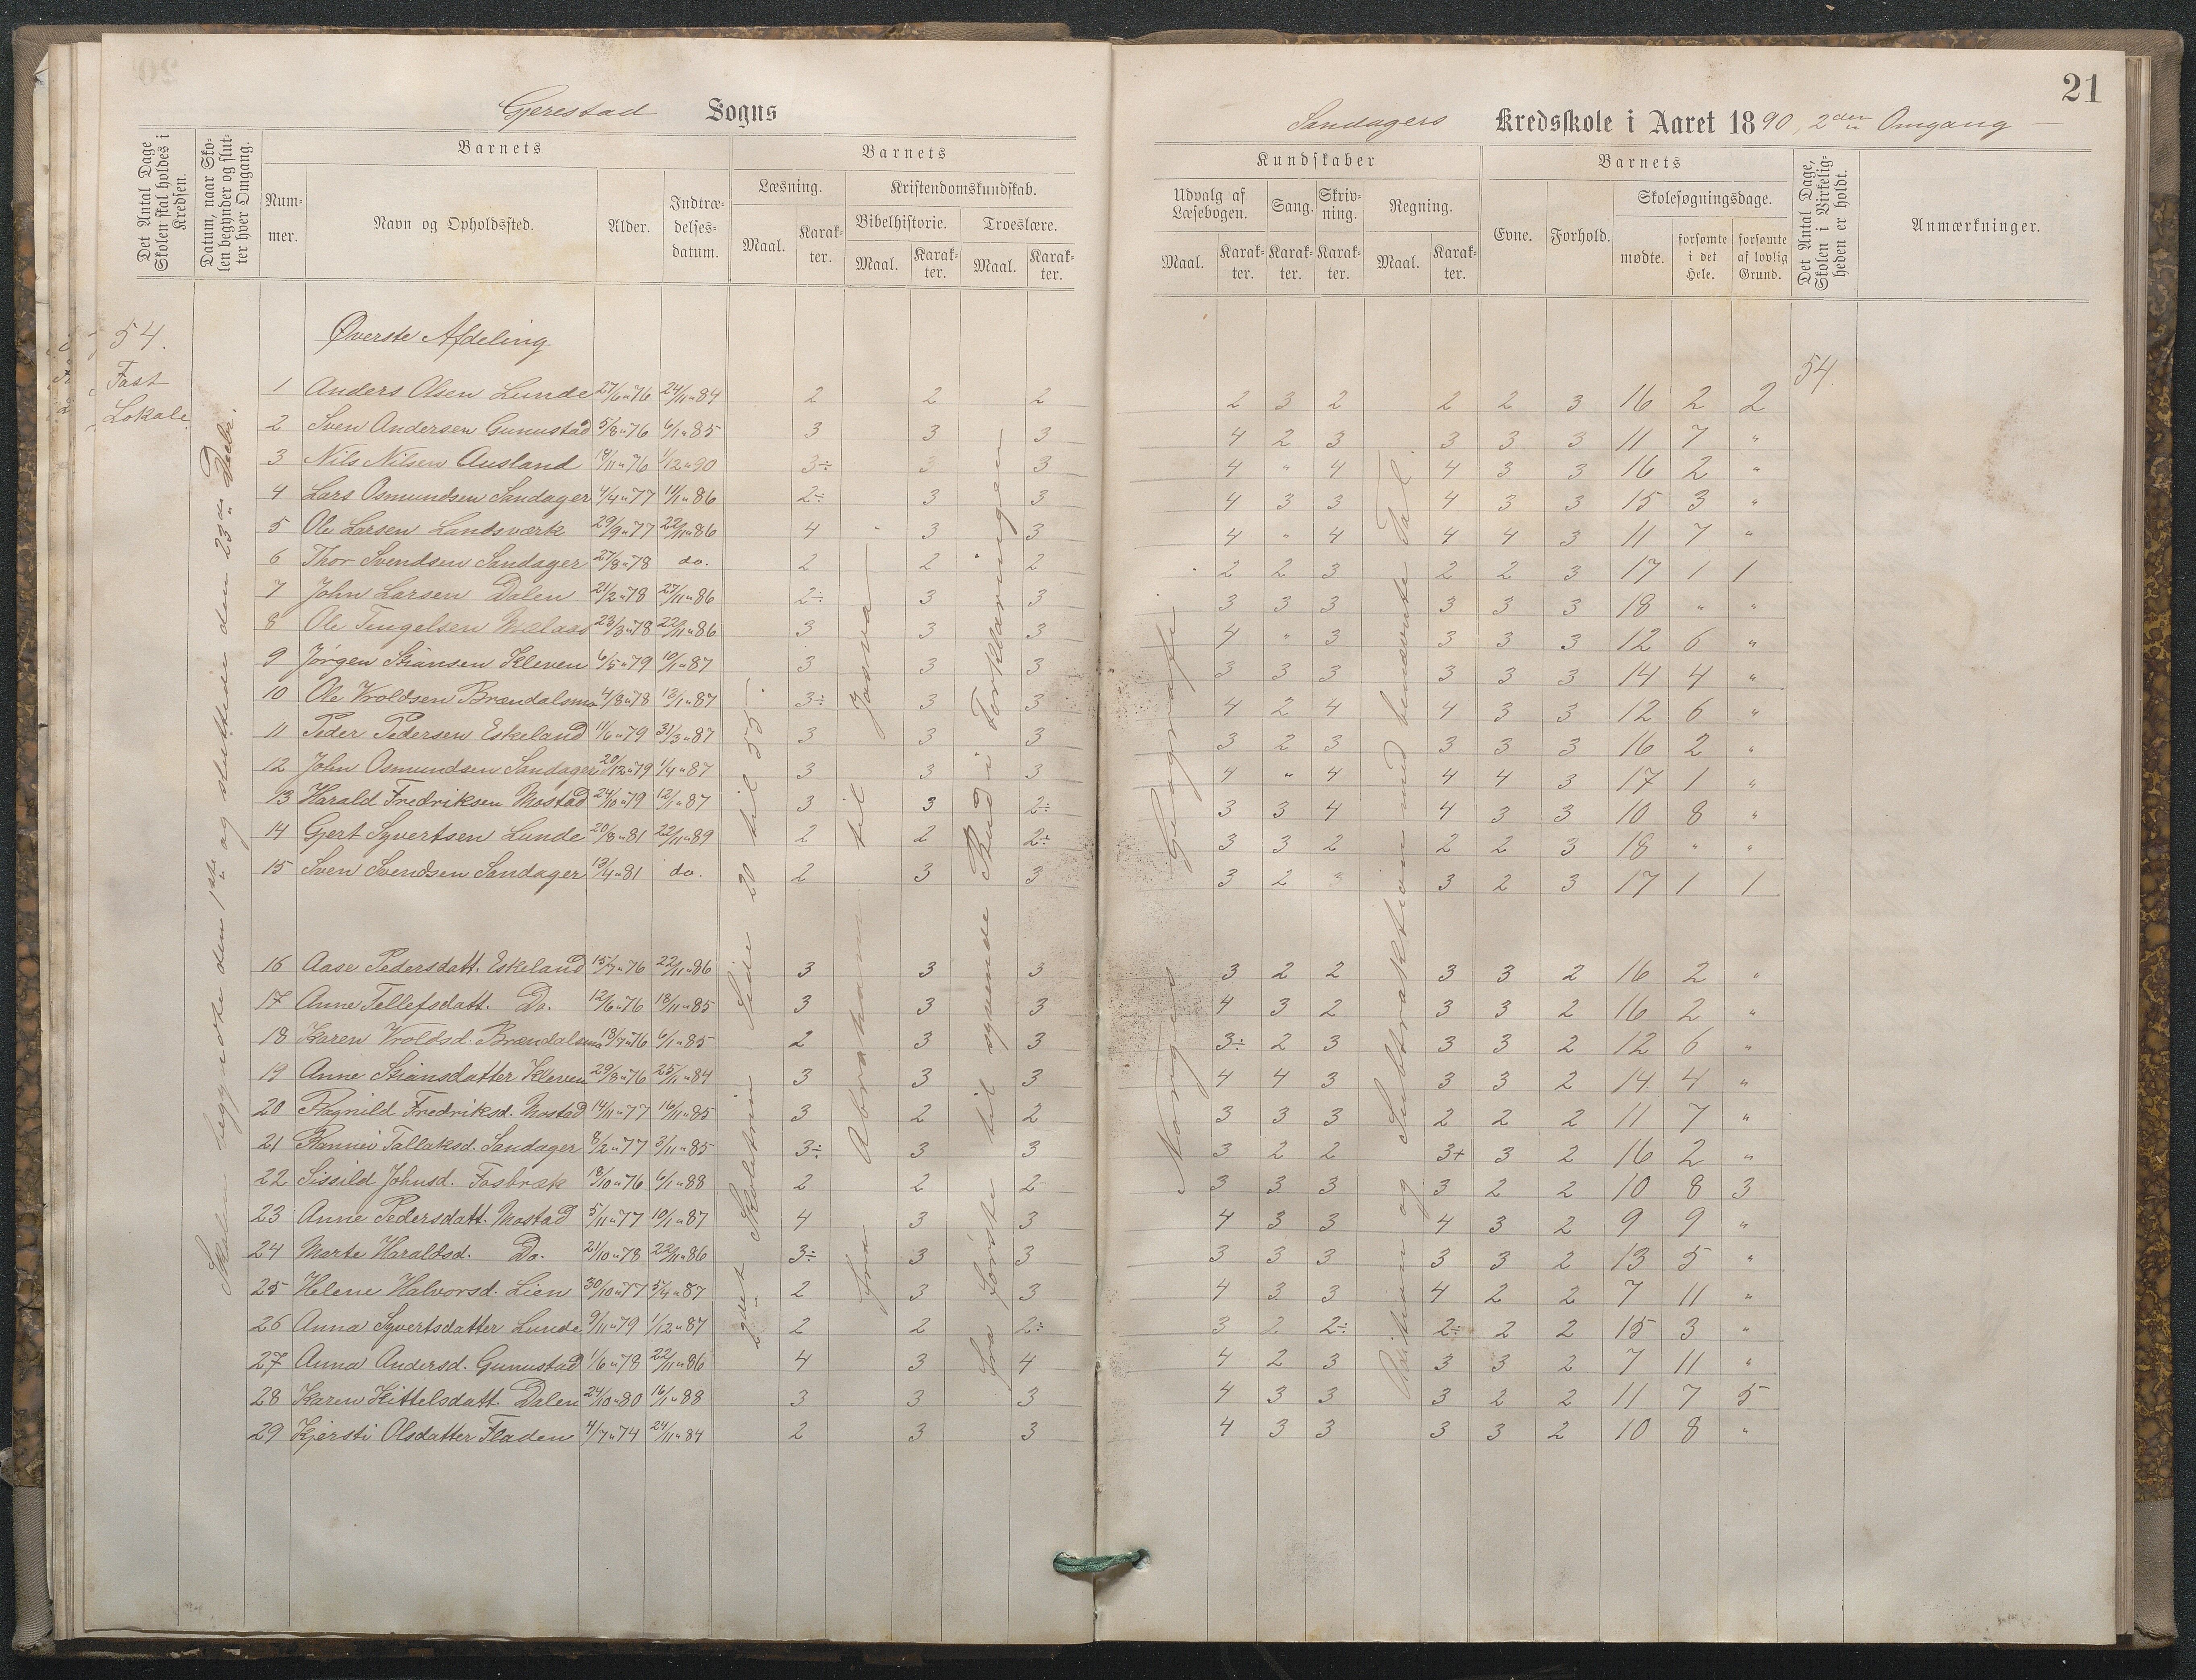 21
Gjerestad Sogns
Sandagers Kredsskole i Aaret 1890, 2den Omgang
Det Antal Dage Skolen skal holdes i Kredsen.
Datum, naar Skolen begynder og slutter hver Omgang.
Barnets
Nummer.
Navn og Opholdssted.
Alder.
Indtrædelsesdatum.
Barnets
Læsning.
Maal.
Karakter.
Kristendomskundskab.
Bibelhistorie.
Maal.
Karakter.
Troeslære.
Maal.
Karakter.
Kundskaber
Udvalg af Læsebogen.
Maal.
Karakter.
Sang.
Karakter.
Skrivning.
Karakter.
Regning.
Maal.
Karakter.
Barnets
Evne.
Forhold.
Skolesøgningsdage.
mødte.
forsømte i det Hele.
forsømte af lovlig Grund.
Det Antal Dage, Skolen i Virkeligheden er holdt.
Anmærkninger.
54.
Fast
Lokale
Skolen begyndte den 1ste og sluttede den 23de Decbr.
Øverste Afdeling
54.
1 Anders Olsen Lunde 27/6 " 76 24/11 " 84 2 2 2 2 3 2 2 2 3 16 2 2
2 Sven Andersen Gunustad 5/8 " 76 6/1 " 85 3 3 3 4 2 3 3 3 3 11 7 "
3 Nils Nilsen Ausland 14/11 " 76 1/12 " 90 3÷ 3 3 4 " 4 4 3 3 16 2 "
4 Lars Osmundsen Sandager 4/4 " 77 11/1 " 86 2÷ 3 3 4 3 3 4 3 3 15 3 "
5 Ole Larsen Landsværk 29/9 " 77 22/11 " 86 4 3 3 4 " 4 4 4 3 11 7 "
6 Thor Svendsen Sandager 27/8 " 78 do. 2 2 2 2 2 3 2 2 3 17 1 1
7 John Larsen Dalen 21/2 " 78 27/11 " 86 2÷ 3 3 3 3 3 3 3 3 18 " "
8 Ole Tengelsen Melaas 23/3 " 78 22/11 " 86 3 3 3 4 " 3 3 3 3 12 6 "
9 Jørgen Stiansen Kleven 6/5 " 79 10/1 " 87 3 3 3 3 3 3 3 3 3 14 4 "
10 Ole Vroldsen Brændalsmo 4/8 " 78 13/1 " 87 3÷ 3 3 4 2 4 4 3 3 12 6 "
11 Peder Pedersen Eskeland 11/6 " 79 31/3 " 87 3 3 3 3 2 3 3 3 3 16 2 "
12 John Osmundsen Sandager 20/12 " 79 1/4 " 87 3 3 3 4 " 4 4 4 3 17 1 "
13 Harald Fredriksen Mostad 24/10 " 79 12/1 " 87 3 3 2÷ 3 3 4 4 3 3 10 8 "
14 Gjert Syvertsen Lunde 20/8 " 81 22/11 " 89 2 2 2÷ 3 3 2 2 2 3 18 " "
15 Sven Svendsen Sandager 13/4 " 81 do. 2 3 3 3 2 3 3 2 3 17 1 1
16 Aase Pedersdatt. Eskeland 15/7 " 76 22/11 " 86 3 3 3 3 2 2 3 3 2 16 2 "
17 Anne Tellefsdatt. Do. 12/6 " 76 18/11 " 85 3 3 3 4 3 2 3 3 2 16 2 "
18 Karen Vroldsd. Brændalsmo 18/7 " 76 6/1 " 85 2 3 3 3÷ 2 3 3 3 2 12 6 "
19 Anne Stiansdatter Kleven 29/8 " 76 25/11 " 84 3 3 3 4 4 3 3 3 2 14 4 "
20 Ragnild Fredriksd. Mostad 14/11 " 77 16/11 " 85 3 2 2 3 3 3 2 2 2 11 7 "
21 Rannei Tallaksd. Sandager 8/2 " 77 3/11 " 85 3÷ 3 3 3 2 2 3+ 3 2 16 2 "
22 Sissild Johnsd. Fosbræk 18/10 " 76 6/1 " 88 2 2 2 3 3 3 3 2 2 10 8 3
23 Anne Pedersdatt. Mostad 5/11 " 77 10/1 " 87 4 3 3 4 3 3 4 3 2 9 9 "
24 Marte Haraldsd. Do. 21/10 " 78 22/11 " 86 3÷ 3 3 3 3 3 3 3 2 13 5 "
25 Helene Halvorsd. Lien 30/10 " 77 5/4 " 87 2 3 3 4 3 3 4 2 2 7 11 "
26 Anna Syvertsdatter Lunde 9/11 " 79 1/12 " 87 2 2 2÷ 3 2 2÷ 2÷ 2 2 15 3 "
27 Anna Andersd. Gunustad 1/6 " 78 22/11 " 86 4 3 4 4 2 3 3 3 2 7 11 "
28 Karen Kittelsdatt. Dalen 24/10 " 80 16/1 " 88 3 3 3 4 3 3 3 2 2 11 7 5
29 Kjersti Olsdatter Fladen 4/7 " 74 24/11 " 84 2 3 3 4 3 3 3 3 2 10 8 "
2det Skoletrin Side 20 til 55.
Fra Abraham til Josva
Fra første til syvende Bud i Forklaringen
Norges Geografi
Addition og Subtraktion med benævnte Tal.